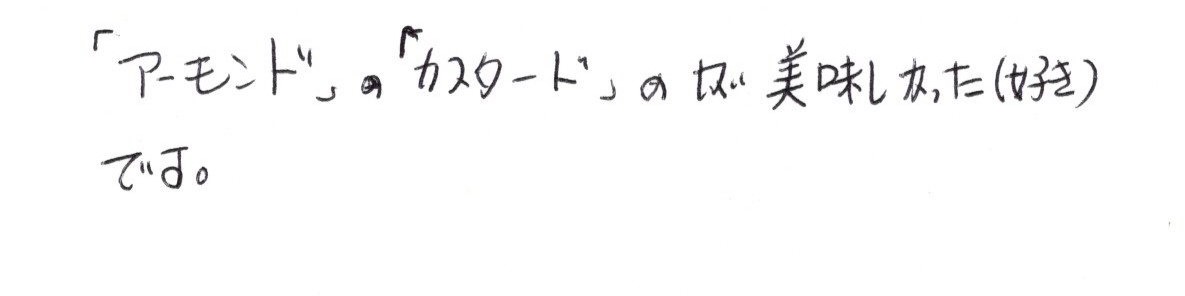 「アーモンド」の「カスタード」のが美味しかった(好き)
です。